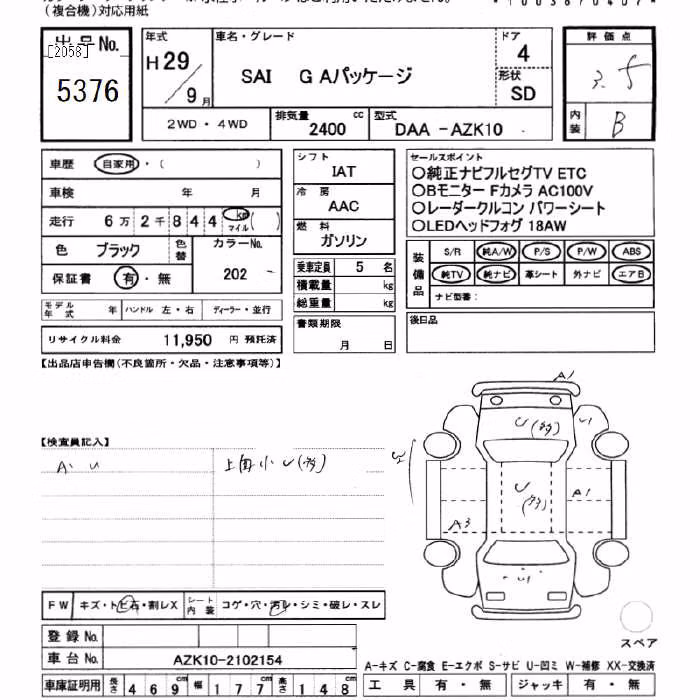 （複合機）対応用紙
出品No.
[2058]
5376
年式
H29/9月
車名・グレード
SAI G Aパッケージ
ドア
4
形状
SD
評価点
3.5
内装
B
2WD・4WD
排気量
2400 cc
型式
DAA -AZK10
車歴 自家用・( )
車検 年 月
走行 6万2千844 km マイル ( )
色 ブラック 色替 カラーNo. 202
保証書 有・無
モデル年式 年 ハンドル 左・右 ディーラー・並行
リサイクル料金 11,950 円 預託済
シフト
IAT
冷房
AAC
燃料
ガソリン
乗車定員 5 名
積載量 kg
総重量 kg
書類期限
月 日
セールスポイント
○純正ナビフルセグTV ETC
○Bモニター Fカメラ AC100V
○レーダークルコン パワーシート
○LEDヘッドフォグ 18AW
装備品
S/R 純A/W P/S P/W ABS
純TV 純ナビ 革シート 外ナビ エアB
ナビ型番：
後日品
【出品店申告欄(不良箇所・欠品・注意事項等)】
【検査員記入】
A・U
上面小U(多)
A1
U1
U(多)
U(多)
A1
A3
U1
FW キズ・トビ石・割レX シート内装 コゲ・穴・汚レ・シミ・破レ・スレ
登録No.
車台No. AZK10-2102154
車庫証明用 長さ 469cm 幅 177cm 高さ 148cm
スペア
A-キズ C-腐食 E-エクボ S-サビ U-凹ミ W-補修 XX-交換済
工具 有・無 ジャッキ 有・無